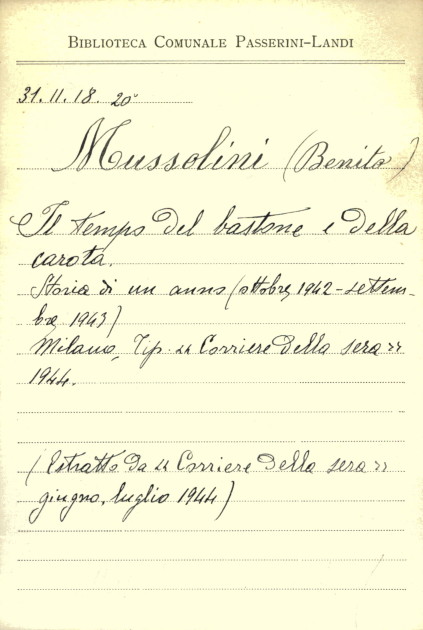 BIBLIOTECA COMUNALE PASSERINI-LANDI
31. II. 18. 20°
Mussolini (Benito)
Il tempo del bastone e della
carota.
Storia di un anno (ottobre 1942 - settem-
bre 1943)
Milano, Tip. « Corriere della sera »
1944.
(Estratto da « Corriere della sera »
giugno, luglio 1944)